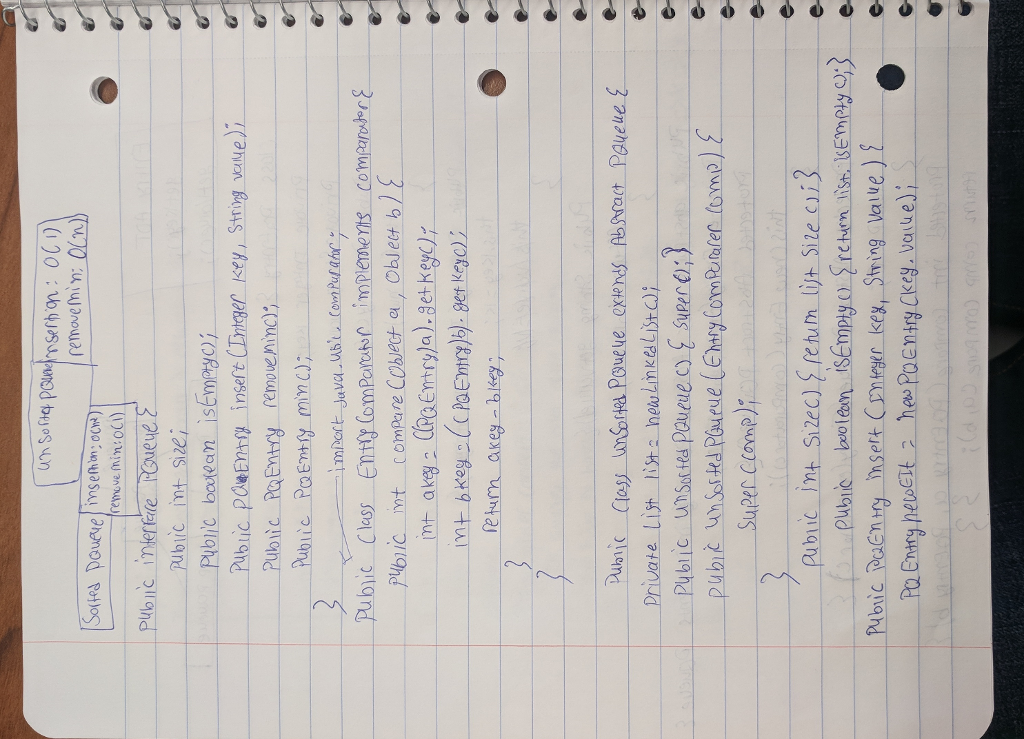 unsorted PQueue insertion: O(1)
removemin: O(n)
Sorted PQueue insertion: O(n)
removemin: O(1)
Public interface PQueue{
public int size;
public boolean isEmpty();
Public PQEntry insert (Integer key, String value);
Public PQEntry removemin();
Public PQEntry min();
}
import java.util.comparator;
Public Class EntryComparator implements comparator{
Public int compare(Object a, Object b) {
int akey = ((PQEntry)a).getKey();
int bkey = ((PQEntry)b).getKey();
return akey-bkey;
}
}
Public Class unSorted PQueue extends Abstract PQueue {
Private List list = new LinkedList();
Public UnSorted PQueue() { super(); }
Public unSorted PQueue (Entry Comparer comp) {
Super (comp);
}
Public int Size() { return list size(); }
Public boolean isEmpty() {return list.isEmpty();}
Public PQEntry insert (Integer key, String value) {
PQ Entry newElt = new PQEntry(key.value);